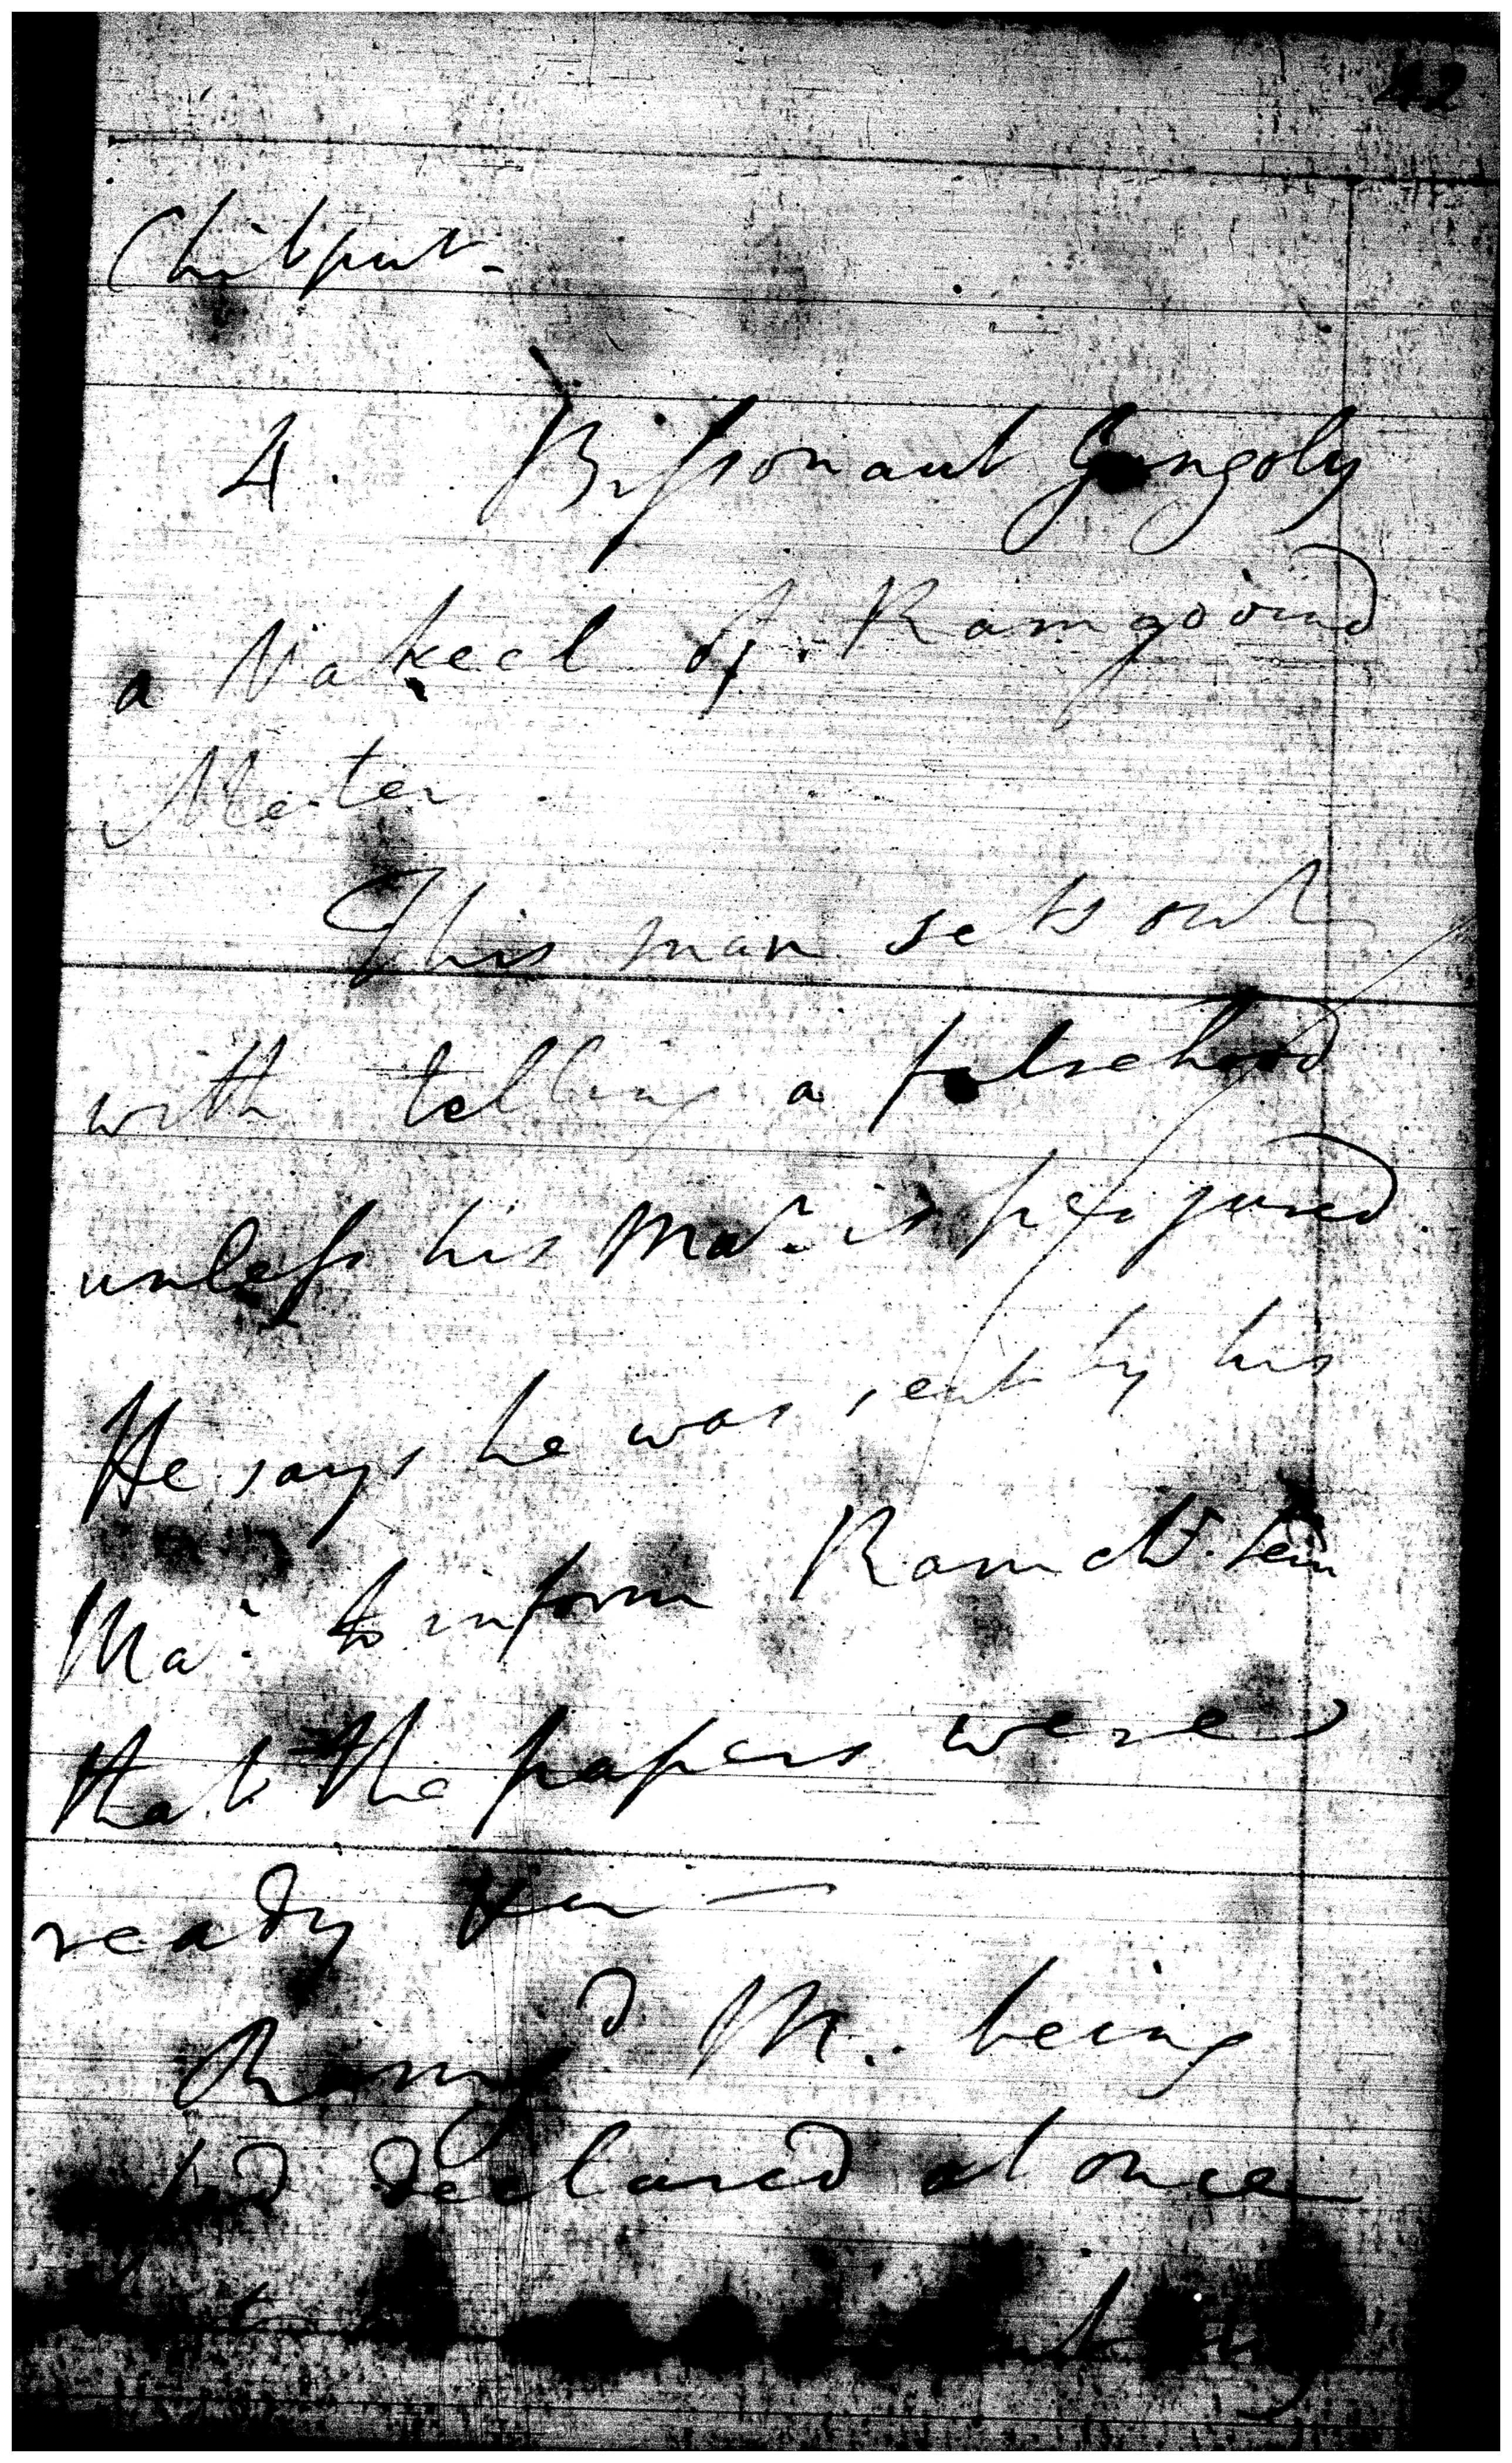 42
Chitput -
4. Bissonaut Gongoly
a Vakeel of Ramgovind
Meter.
This man sets out
with telling a falsehood
unless his Mar. is perjured.
He says he was sent by his
Mar. to inform Ram
that the papers were
ready
Ramgd M. being
declared at once